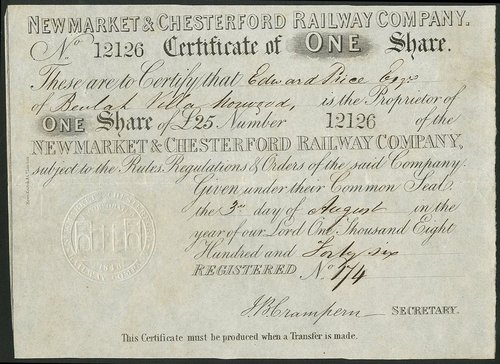 NEWMARKET & CHESTERFORD RAILWAY COMPANY.
No. 12126 Certificate of ONE Share.
These are to Certify that Edward Price Esqr.
of Beulah Villa Norwood, is the Proprietor of
ONE Share of £25 Number 12126 of the
NEWMARKET & CHESTERFORD RAILWAY COMPANY,
subject to the Rules, Regulations & Orders of the said Company.
Given under their Common Seal
the 3rd day of August in the
year of our Lord One Thousand Eight
Hundred and Forty six
REGISTERED No. 174
SECRETARY.
This Certificate must be produced when a Transfer is made.